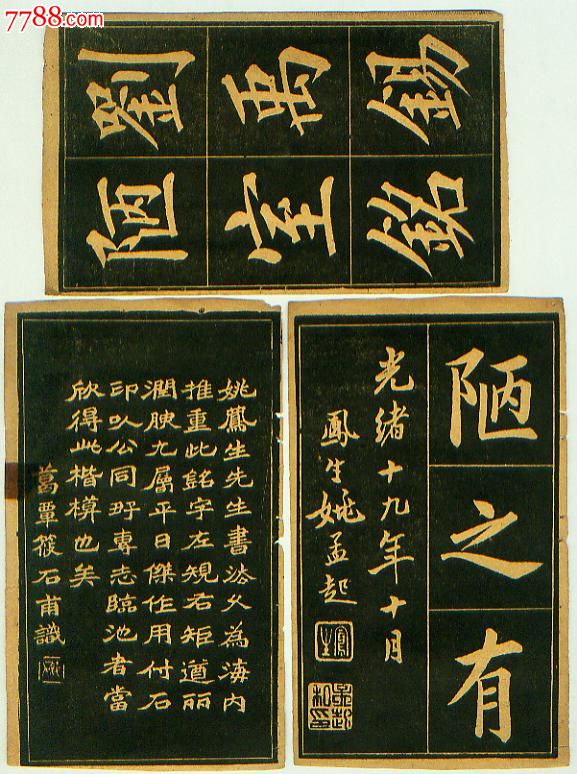 7788.com
劉禹錫
陋室銘
陋之有
光緒十九年十月
鳳生姚孟起
鳳生
姚鳳生先生書法久為海内
推重此銘字左規右矩遒麗
潤腴尤屬平日傑作用付石
印以公同好專志臨池者當
欣得此楷模也矣
葛覃筱石甫識